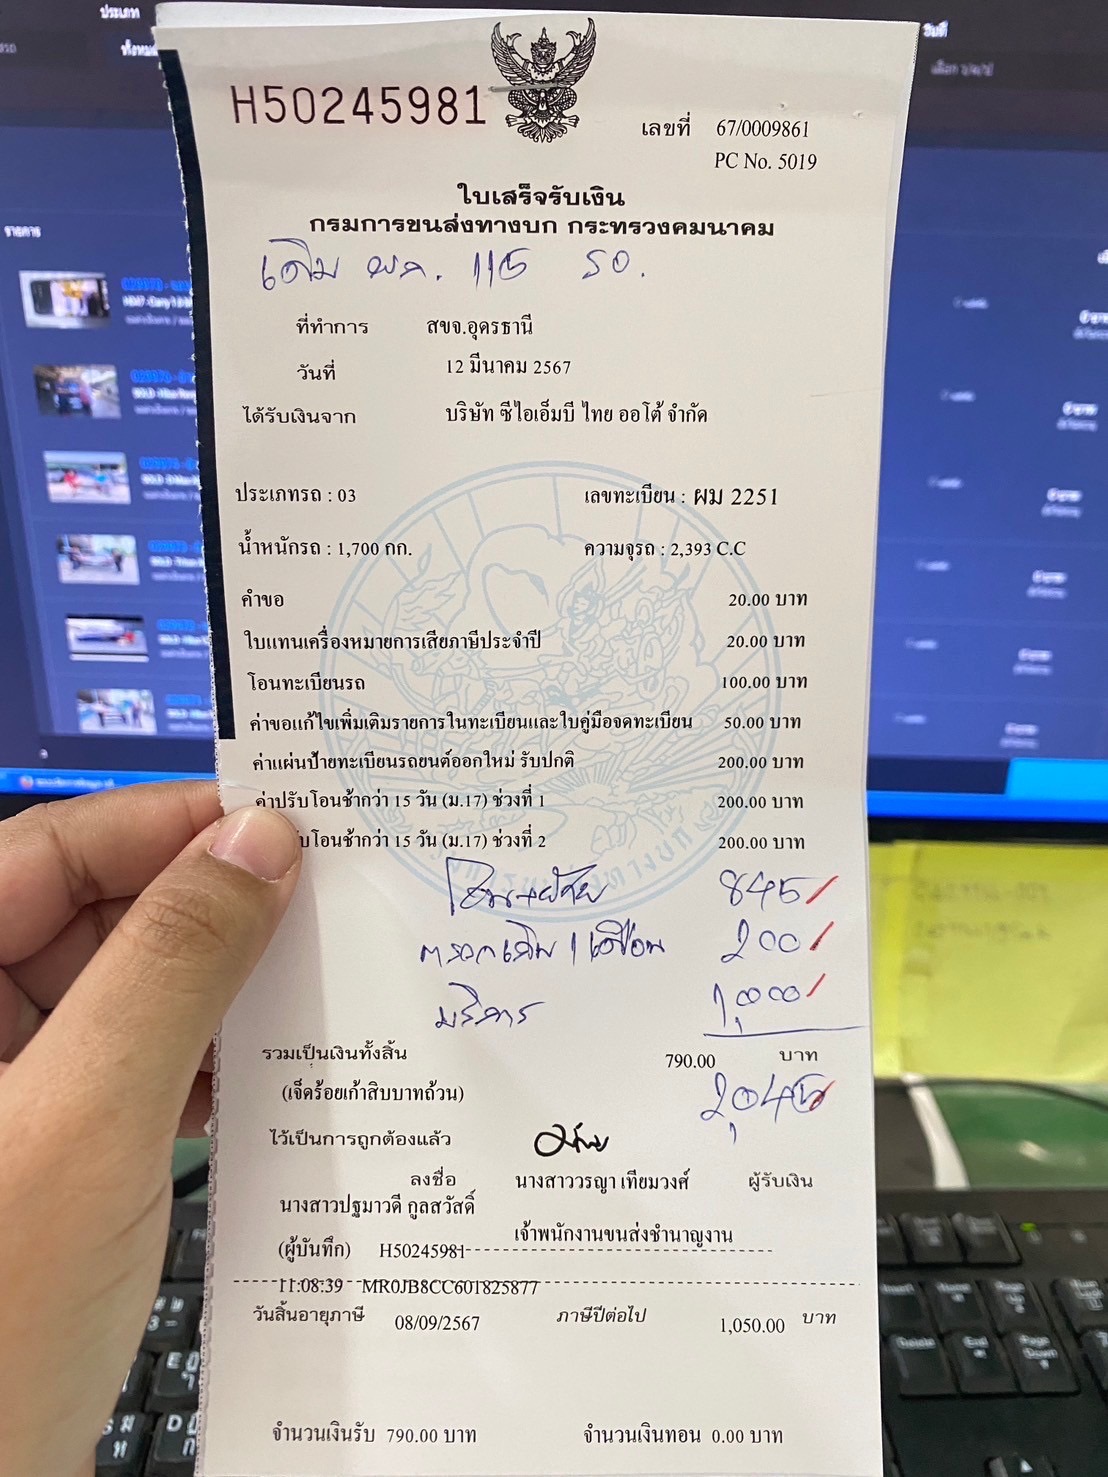 ประเภท
H50245981
เลขที่ 67/0009861
PC No. 5019
ใบเสร็จรับเงิน
กรมการขนส่งทางบก กระทรวงคมนาคม
เดิม ผก. 115 รอ.
ที่ทำการ สขจ.อุดรธานี
วันที่ 12 มีนาคม 2567
ได้รับเงินจาก บริษัท ซีไอเอ็มบี ไทย ออโต้ จำกัด
ประเภทรถ : 03 เลขทะเบียน : ผม 2251
น้ำหนักรถ : 1,700 กก. ความจุรถ : 2,393 C.C
คำขอ 20.00 บาท
ใบแทนเครื่องหมายการเสียภาษีประจำปี 20.00 บาท
โอนทะเบียนรถ 100.00 บาท
ค่าขอแก้ไขเพิ่มเติมรายการในทะเบียนและใบคู่มือจดทะเบียน 50.00 บาท
ค่าแผ่นป้ายทะเบียนรถยนต์ออกใหม่ รับปกติ 200.00 บาท
ค่าปรับโอนช้ากว่า 15 วัน (ม.17) ช่วงที่ 1 200.00 บาท
ปรับโอนช้ากว่า 15 วัน (ม.17) ช่วงที่ 2 200.00 บาท
โอน+ย้าย 845
ตรอ 200
บริการ 1,000
รวมเป็นเงินทั้งสิ้น 790.00 บาท
(เจ็ดร้อยเก้าสิบบาทถ้วน) 2,045
ไว้เป็นการถูกต้องแล้ว
ลงชื่อ นางสาววรญา เทียมวงศ์ ผู้รับเงิน
นางสาวปฐมาวดี กูลสวัสดิ์
เจ้าพนักงานขนส่งชำนาญงาน
(ผู้บันทึก) H50245981
11:08:39 MR0JB8CC601825877
วันสิ้นอายุภาษี 08/09/2567 ภาษีปีต่อไป 1,050.00 บาท
จำนวนเงินรับ 790.00 บาท จำนวนเงินทอน 0.00 บาท